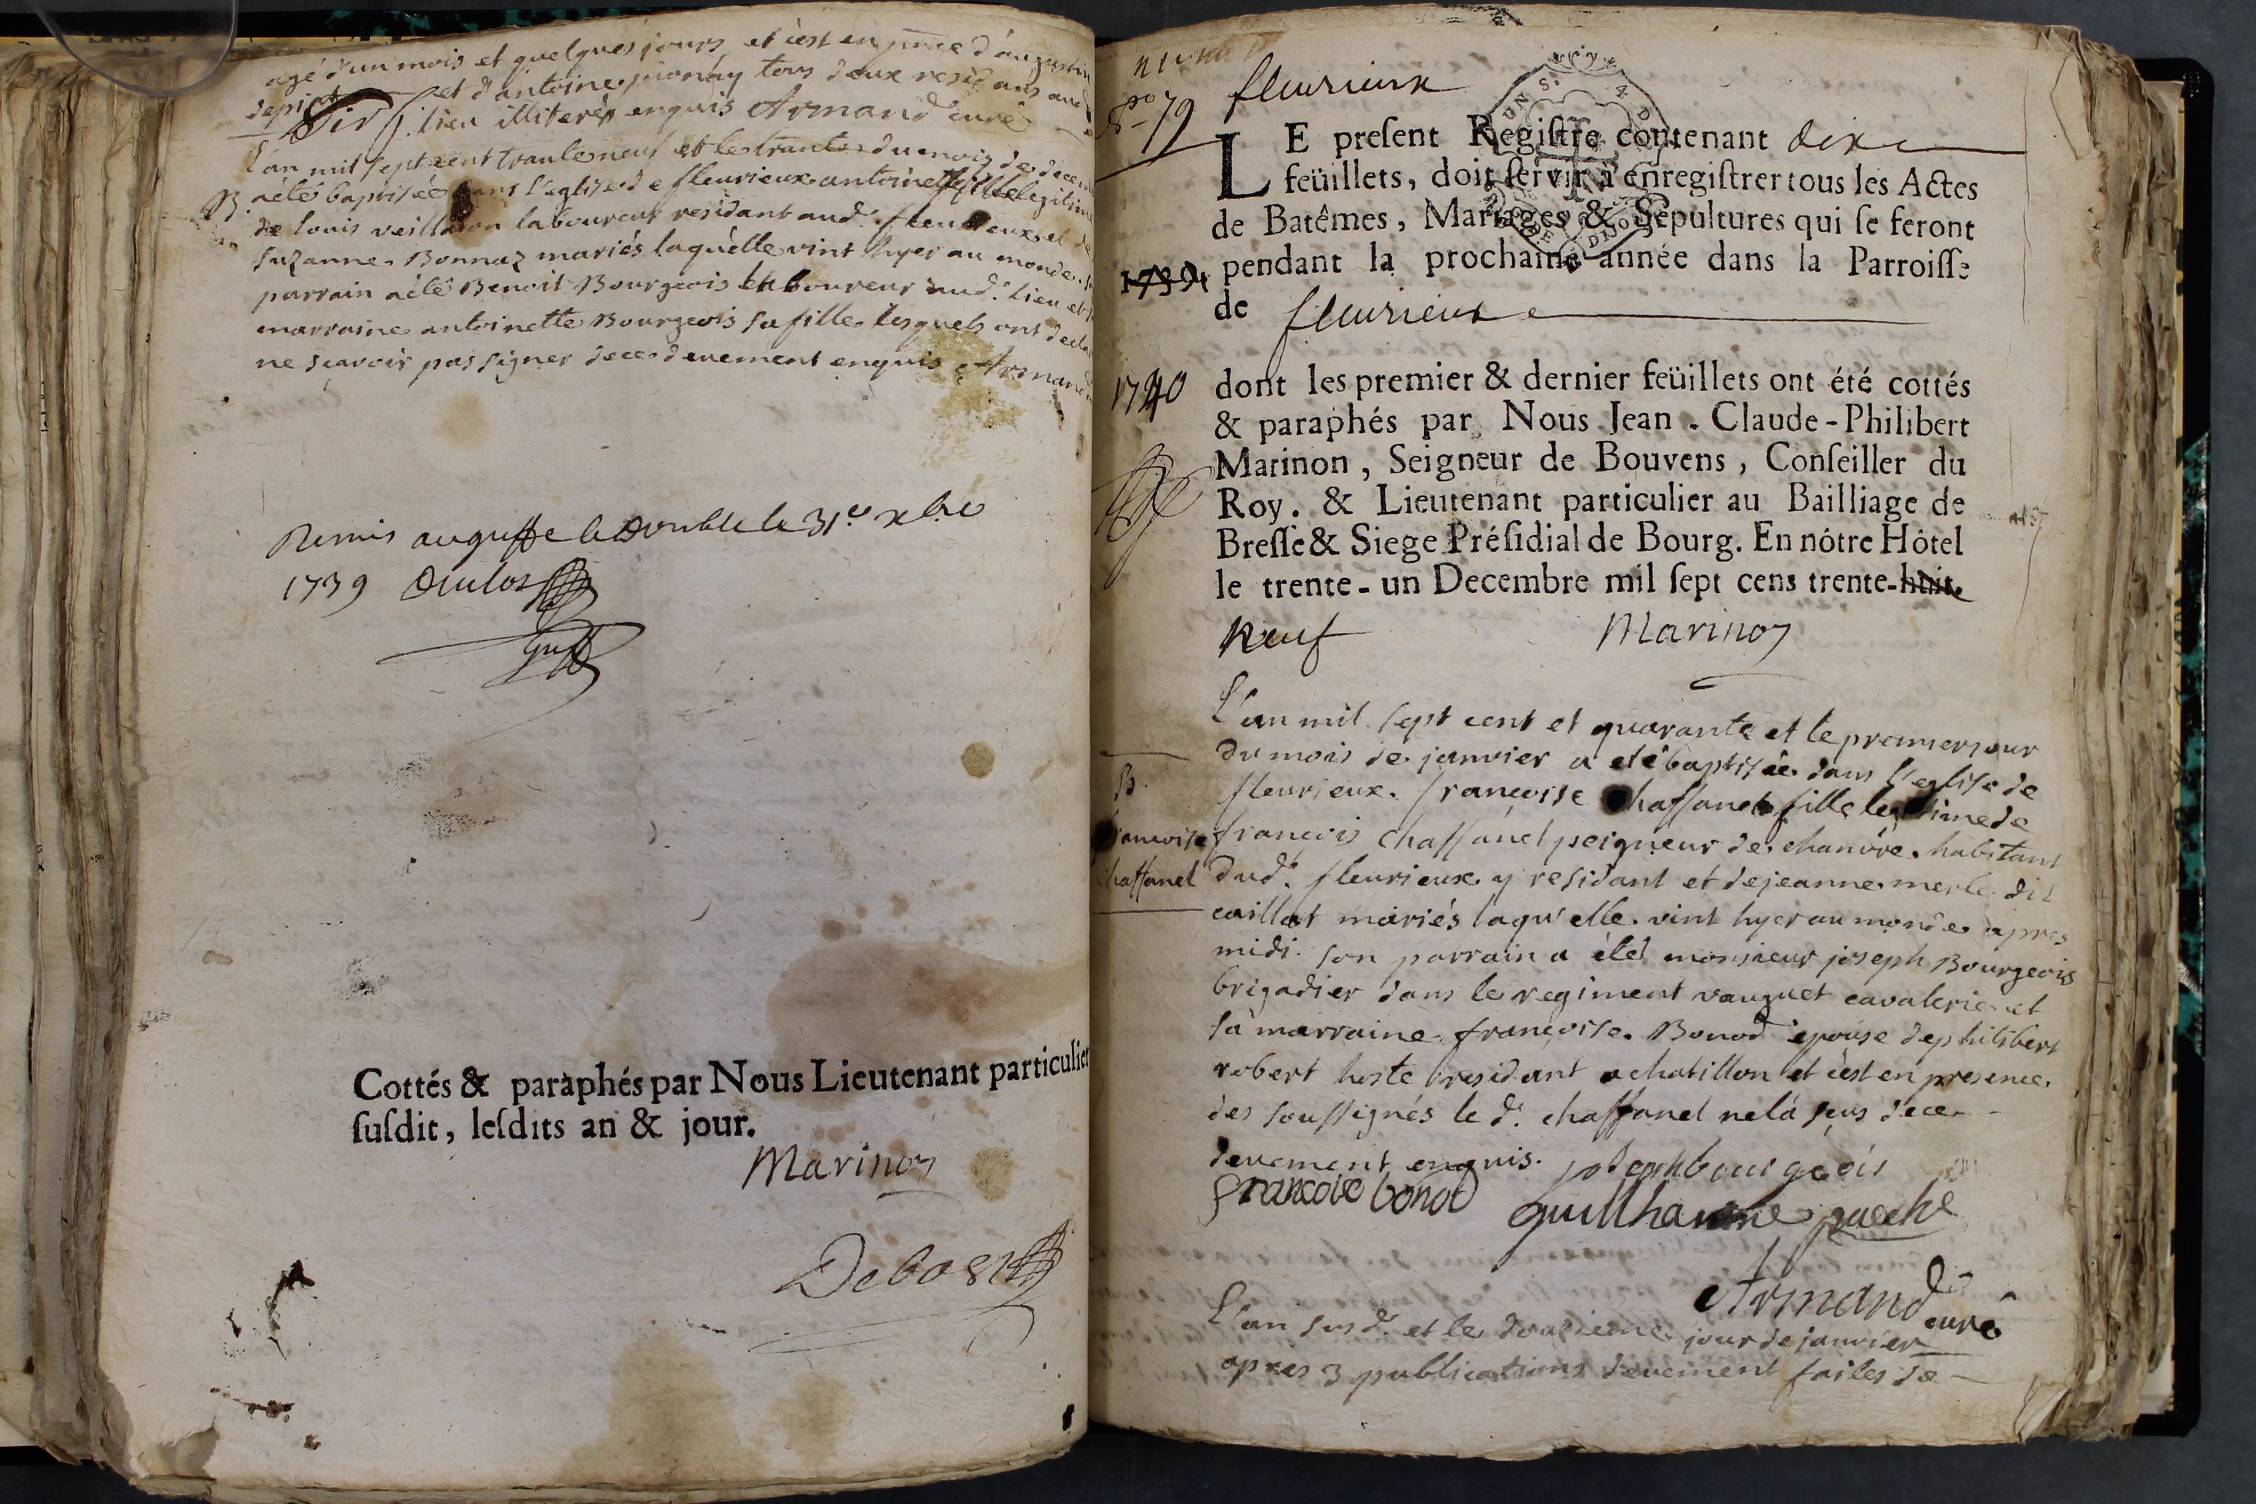 agé d'un mois et quelques jours et c'est en pnce d'augustin
depint et d'antoine pionay tous deux residans aud
Dix lieu illiterés enquis Armand curé
L'an mil sept cent trante neuf et le trante du mois de decem
B. a eté baptisée dans l'eglise de fleurieux antoinette fille legitime
de louis veillanon laboureur residant aud. fleurieux et de
suzanne Bonnaz mariés laquelle vint hyer au monde. s
parrain a été Benoit Bourgeois laboureur aud. lieu et s
marraine antoinette Bourgeois sa fille lesquels ont decla
ne scavoir pas signer de ce deuement enquis Armand
Remis au greffe le double le 31.e xbre
1739
Cottés & paraphés par Nous Lieutenant particulier
susdit, lesdits an & jour.
Marinon
Debost
fleurieux
79
LE present Registre contenant dix
feüillets, doit servir à enregistrer tous les Actes
de Batêmes, Mariages & Sepultures qui se feront
1739 pendant la prochaine année dans la Parroisse
de fleurieux
1740 dont les premier & dernier feüillets ont été cottés
& paraphés par Nous Jean-Claude-Philibert
Marinon, Seigneur de Bouvens, Conseiller du
Roy. & Lieutenant particulier au Bailliage de
Bresse & Siege Présidial de Bourg. En nôtre Hôtel
le trente-un Decembre mil sept cens trente-huit.
neuf Marinon
L'an mil sept cent et quarante et le premier jour
du mois de janvier a eté baptisée dans l'eglise de
B. fleurieux. francoise chaffanet fille legitime de
francoise francois chaffanet peigneur de chanvre habitant
chaffanet dud. fleurieux y residant et de jeanne merle dit
caillat mariés laqu'elle vint hyer au monde apres
midi. son parrain a été monsieur joseph Bourgeois
brigadier dans le regiment vauguet cavalerie et
sa marraine francoise Bonod epouse de philibert
robert hoste residant a chatillon et c'est en presence
des soussignés le d. chaffanel ne la sçus de ce
deuement enquis. joseph bourgeois
francoise bonod guilhaume pache
Armand curé
L'an susd. et le douzieme jour de janvier
apres 3 publications deuement faites de